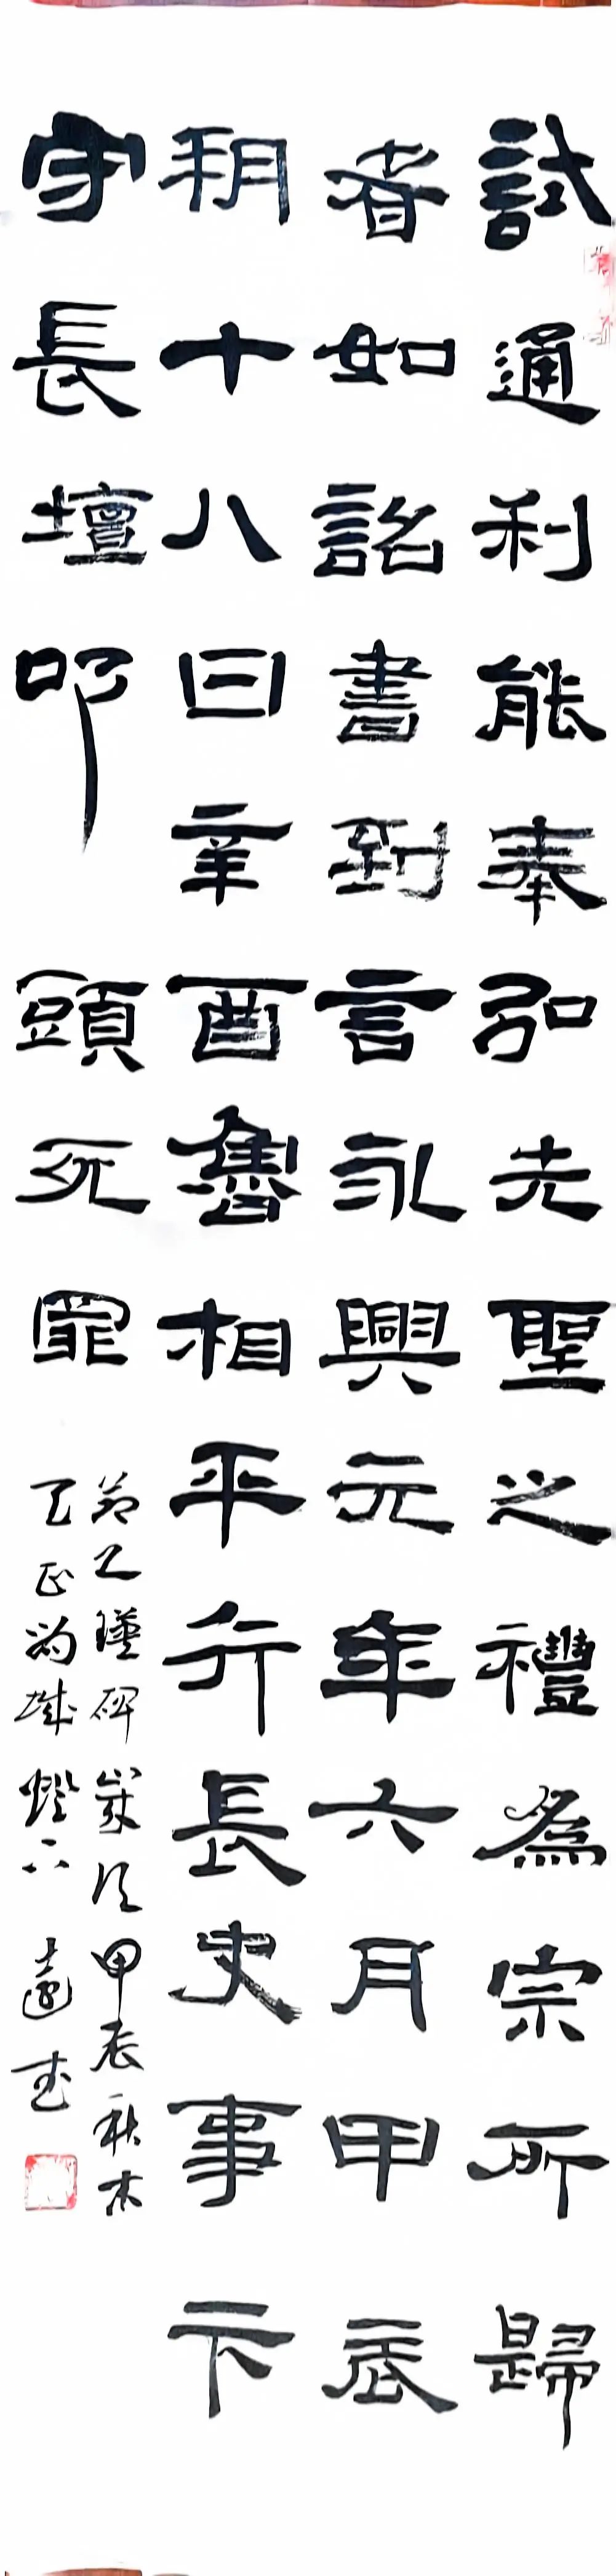 試通利能奉弘先聖之禮為宗所歸
者如詔書到言永興元年六月甲辰
朔十八日辛酉魯相平行長史事卞
守長壇叩頭死罪
節乙瑛碑歲次甲辰秋
燈下